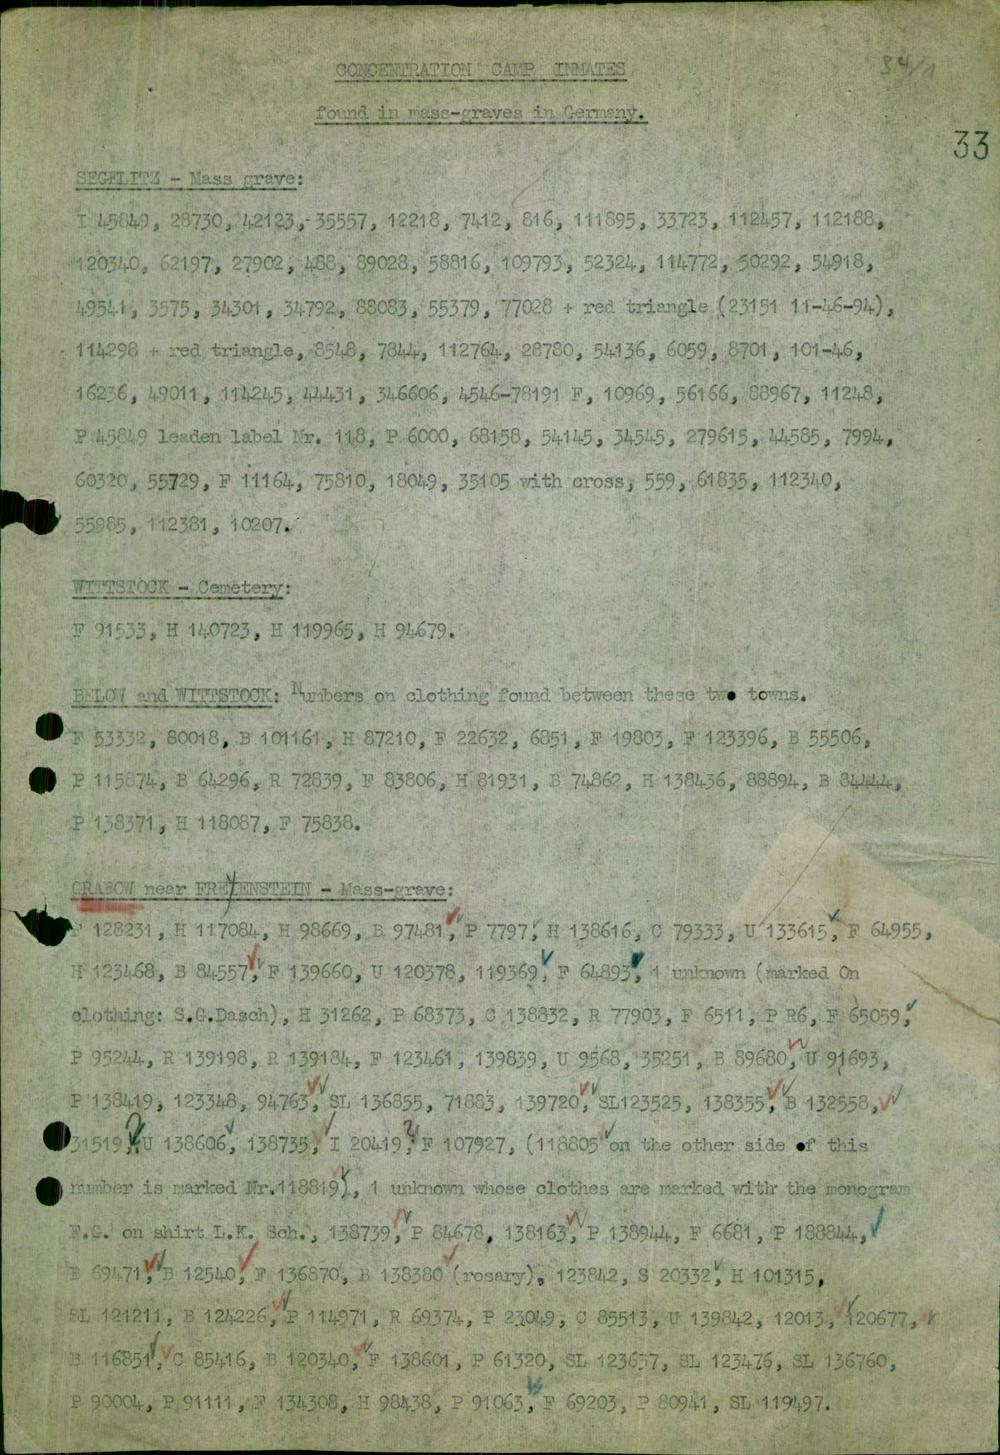 CONCENTRATION CAMP INMATES
34/1
found in mass-graves in Germany.
33
SEGELITZ - Mass grave:
I 45849, 28730, 42123, 35557, 12218, 7412, 816, 111895, 33723, 112457, 112188,
120340, 62197, 27902, 488, 89028, 58816, 109793, 52324, 114772, 50292, 54918,
49541, 3575, 34301, 34792, 88083, 55379, 77028 + red triangle (23151 11-46-94),
114298 + red triangle, 8548, 7844, 112764, 28780, 54136, 6059, 8701, 101-46,
16236, 49011, 114245, 44431, 346606, 4546-78191 F, 10969, 56166, 88967, 11248,
P 45849 leaden label Nr. 118, P 6000, 68158, 54145, 34545, 279615, 44585, 7994,
60320, 55729, F 11164, 75810, 18049, 35105 with cross, 559, 61835, 112340,
55985, 112381, 10207.
WITTSTOCK - Cemetery:
F 91533, H 140723, H 119965, H 94679.
BELOW and WITTSTOCK: Numbers on clothing found between these two towns.
F 53332, 80018, B 101161, H 87210, F 22632, 6851, F 19803, F 123396, B 55506,
P 115874, B 64296, R 72839, F 83806, H 81931, B 74862, H 138436, 88894, B 84444,
P 138371, H 118087, F 75838.
GRABOW near FREYENSTEIN - Mass-grave:
F 128231, H 117084, H 98669, B 97481, P 7797, H 138616, C 79333, U 133615, F 64955,
H 123468, B 84557, F 139660, U 120378, 119369, F 64893, 1 unknown (marked On
clothing: S.G.Dasch), H 31262, P 68373, C 138832, R 77903, F 6511, P R6, F 65059,
P 95244, R 139198, R 139184, F 123461, 139839, U 9568, 35251, B 89680, U 91693,
P 138419, 123348, 94763, SL 136855, 71883, 139720, SL123525, 138355, B 132558,
31519, U 138606, 138735, I 20419, F 107927, (118805 on the other side of this
number is marked Nr.118819), 1 unknown whose clothes are marked with the monogram
F.G. on shirt L.K. Sch., 138739, P 84678, 138163, P 138944, F 6681, P 188844,
B 69471, B 12540, F 136870, B 138380 (rosary), 123842, S 20332, H 101315,
SL 121211, B 124226, P 114971, R 69374, P 23049, C 85513, U 139842, 12013, 120677,
B 116851, C 85416, B 120340, F 138601, P 61320, SL 123657, SL 123476, SL 136760,
P 90004, P 91111, F 134308, H 98438, P 91063, F 69203, P 80941, SL 119497.